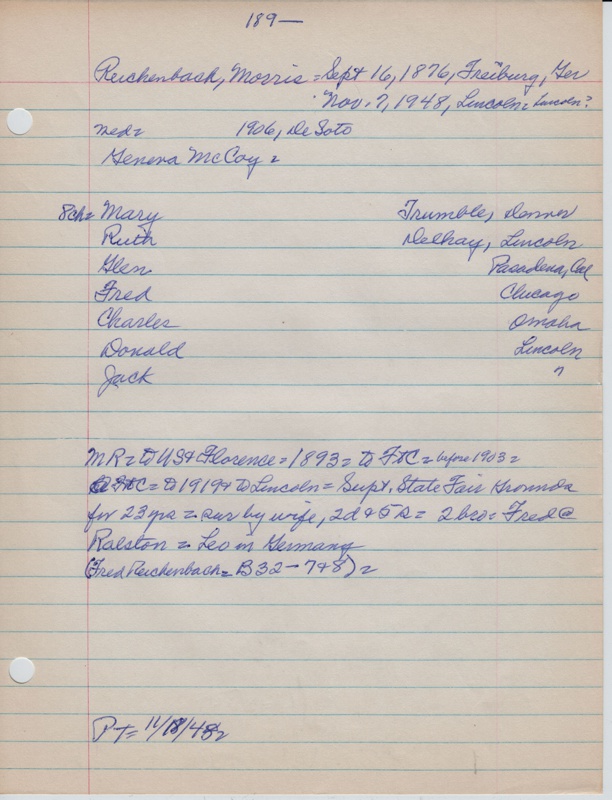 189—
Reichenbach, Morris = Sept 16, 1876, Freiburg, Ger
Nov. 7, 1948, Lincoln = Lincoln?
med = 1906, De Soto
Geneva McCoy =
8ch = Mary Trumble, Denver
Ruth Delhay, Lincoln
Glen Pasadena, Cal
Fred Chicago
Charles Omaha
Donald Lincoln
Jack ?
MR = to US & Florence = 1893 = to FtC = before 1903 =
@ FtC = to 1919 & to Lincoln = Supt. State Fair Grounds
for 23 yrs = sur by wife, 2d & 5s = 2 bro = Fred @
Ralston = Leo in Germany
(Fred Reichenbach = B32-7&8) =
PT = 11/18/48 =